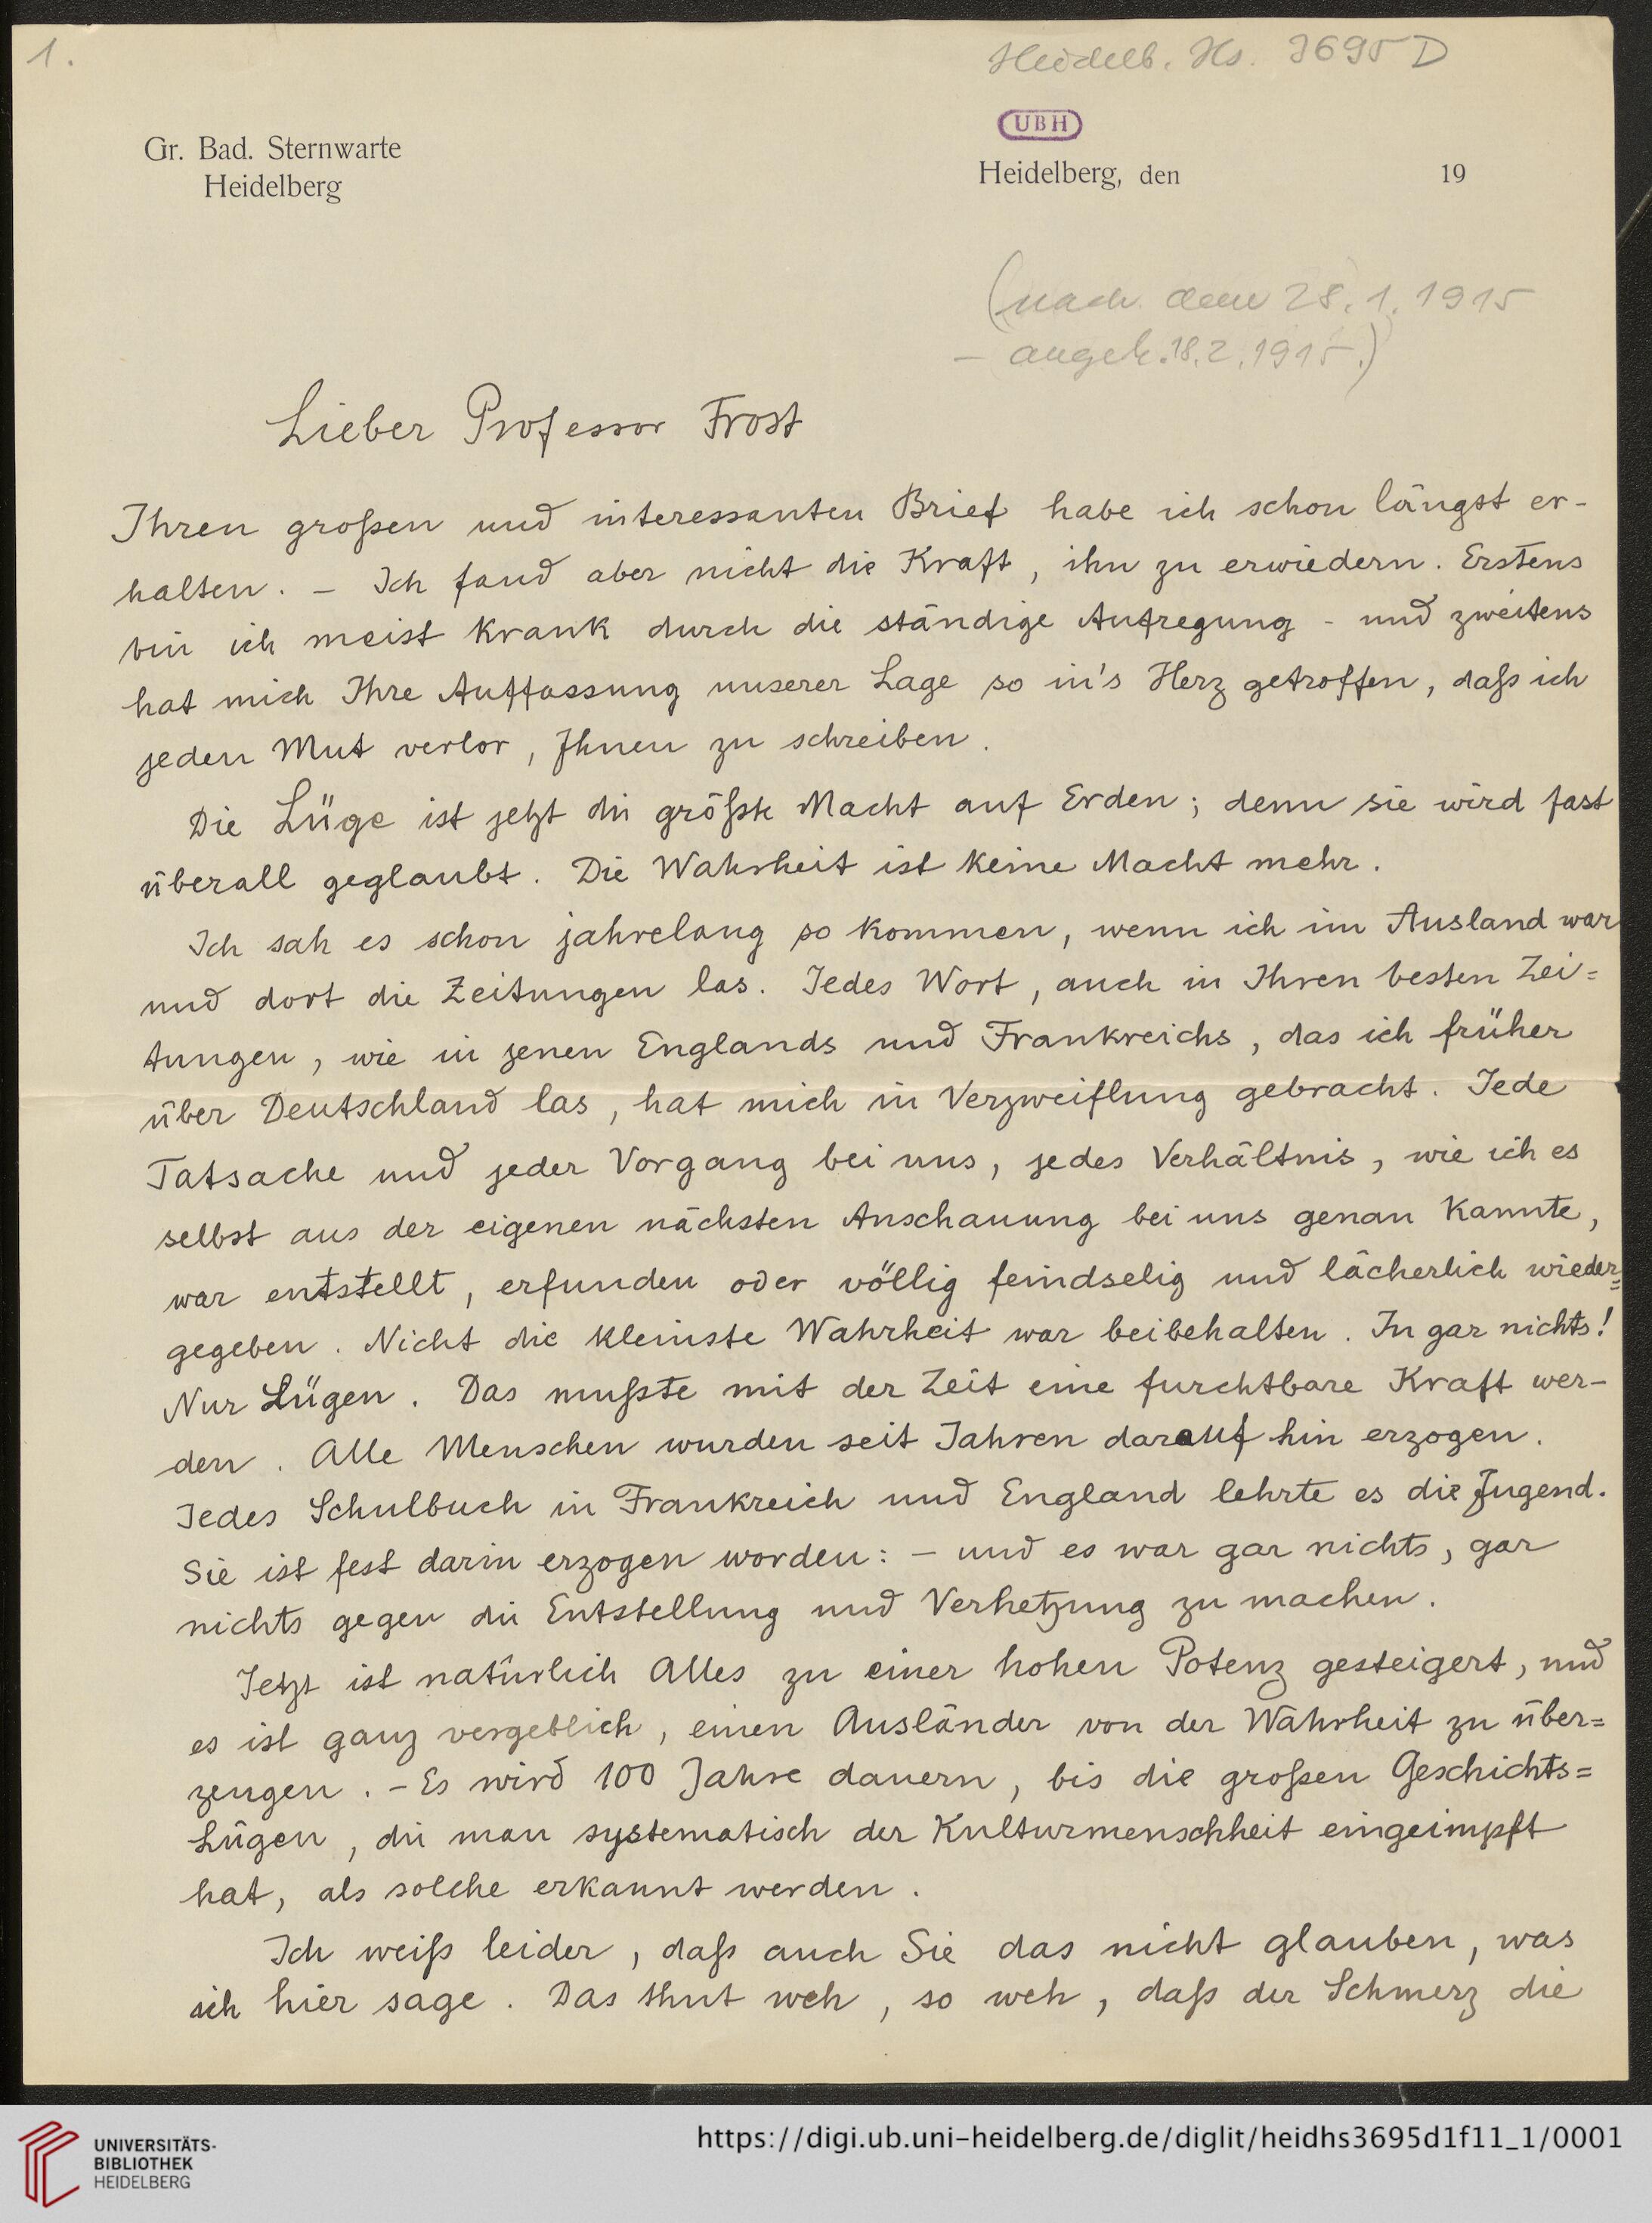 1.
Heidelb. Hs. 3695 D
UBH
Gr. Bad. Sternwarte
Heidelberg
Heidelberg, den 19
(nach dem 28.1.1915
– angek. 18.2.1915.)
Lieber Professor Frost
Ihren großen und interessanten Brief habe ich schon längst er-
halten. – Ich fand aber nicht die Kraft, ihn zu erwiedern. Erstens
bin ich meist krank durch die ständige Aufregung - und zweitens
hat mich Ihre Auffassung unserer Lage so in's Herz getroffen, daß ich
jeden Mut verlor, Ihnen zu schreiben.
Die Lüge ist jetzt die größte Macht auf Erden; denn sie wird fast
überall geglaubt. Die Wahrheit ist keine Macht mehr.
Ich sah es schon jahrelang so kommen, wenn ich im Ausland war
und dort die Zeitungen las. Jedes Wort, auch in Ihren besten Zei=
tungen, wie in jenen Englands und Frankreichs, das ich früher
über Deutschland las, hat mich in Verzweiflung gebracht. Jede
Tatsache und jeder Vorgang bei uns, jedes Verhältnis, wie ich es
selbst aus der eigenen nächsten Anschauung bei uns genau kannte,
war entstellt, erfunden oder völlig feindselig und lächerlich wieder=
gegeben. Nicht die kleinste Wahrheit war beibehalten. In gar nichts!
Nur Lügen. Das mußte mit der Zeit eine furchtbare Kraft wer-
den. Alle Menschen wurden seit Jahren darauf hin erzogen.
Jedes Schulbuch in Frankreich und England lehrte es die Jugend.
Sie ist fest darin erzogen worden: – und es war gar nichts, gar
nichts gegen die Entstellung und Verhetzung zu machen.
Jetzt ist natürlich Alles zu einer hohen Potenz gesteigert, und
es ist ganz vergeblich, einen Ausländer von der Wahrheit zu über=
zeugen. – Es wird 100 Jahre dauern, bis die großen Geschichts=
Lügen, die man systematisch der Kulturmenschheit eingeimpft
hat, als solche erkannt werden.
Ich weiß leider, daß auch Sie das nicht glauben, was
ich hier sage. Das thut weh, so weh, daß der Schmerz die
UNIVERSITÄTS-
BIBLIOTHEK
HEIDELBERG
https://digi.ub.uni-heidelberg.de/diglit/heidhs3695d1f11_1/0001